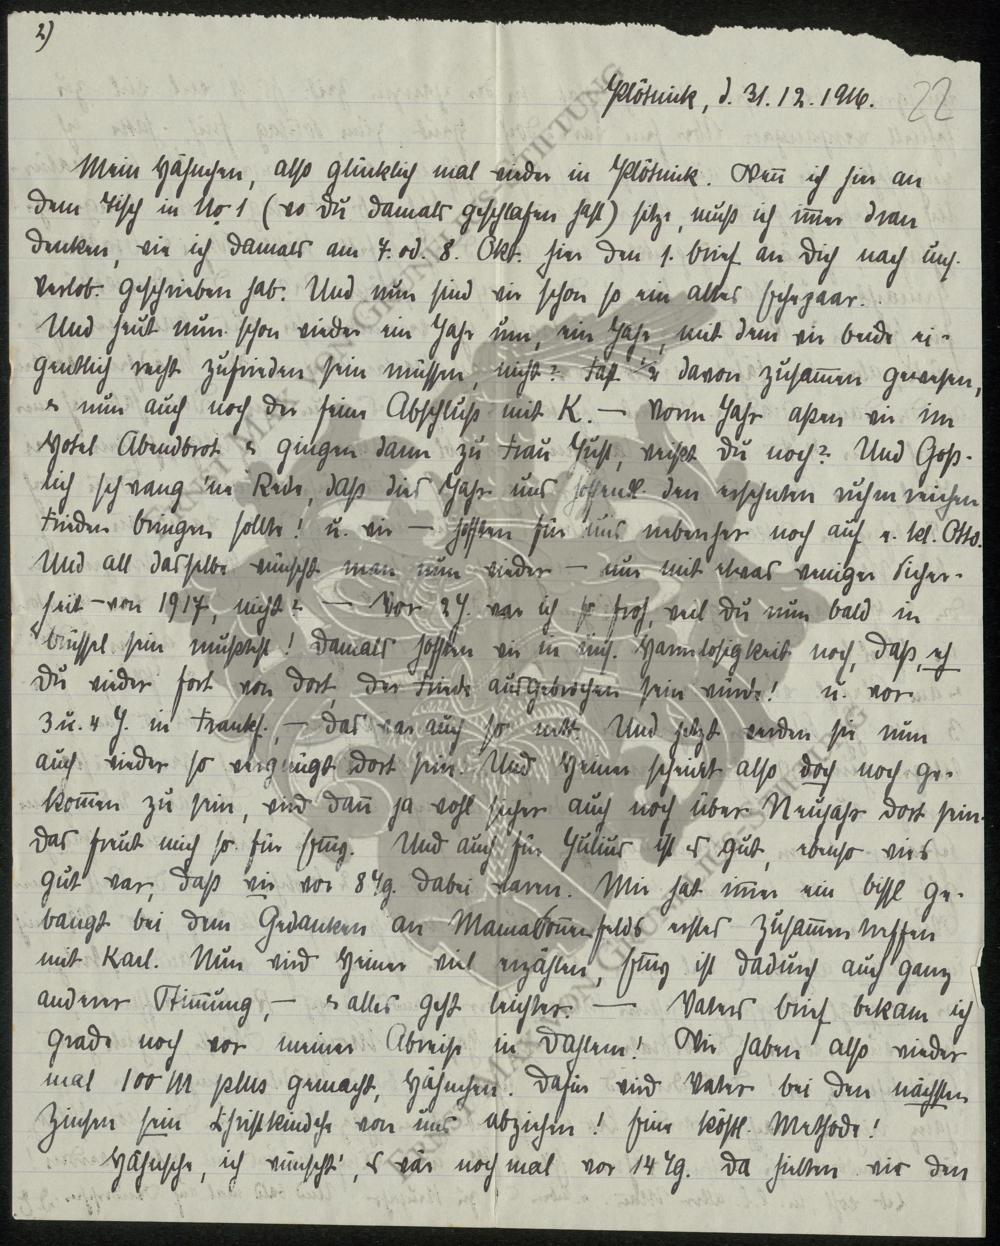 2)
Plötnick, d. 31.12.1916. 22
Mein Hähnchen, also glücklich mal wieder in Plötnick. Wenn ich hier an
dem Tisch in No 1 (wo Du damals geschlafen hast) sitze, muß ich immer dran
denken, wie ich damals am 7. od. 8. Okt. hier den 1. Brief an Dich nach uns.
Verlob. geschrieben hab. Und nun sind wir schon so ein altes Ehepaar.
Und heut nun schon wieder ein Jahr um, ein Jahr, mit dem wir beide ei-
gentlich recht zufrieden sein müssen, nicht? Fast 1/2 davon zusammen gewesen,
& nun auch noch der feine Abschluß mit K. — Vorm Jahr aßen wir im
Hotel Abendbrot & gingen dann zu Frau Just, weißt Du noch? Und Goß-
lich schwang 'ne Rede, daß dies Jahr uns hoffentl. den ersehnten ruhmreichen
Frieden bringen sollte! u. wir — hofften für uns nebenher noch auf e. kl. Otto.
Und all dasselbe wünscht man nun wieder — nur mit etwas weniger Sicher-
heit — von 1917, nicht? — Vor 2 J. war ich so froh, weil Du nun bald in
Brüssel sein mußtest! Damals hofften wir in uns. Harmlosigkeit noch, daß, eh
Du wieder fort von dort, der Friede ausgebrochen sein würde! u. vor
3 u. 4 J. in Frankf., — das war auch so nett. Und jetzt werden sie nun
auch wieder so vergnügt dort sein. Und Heiner scheint also doch noch ge-
kommen zu sein, wird dann ja wohl sicher auch noch über Neujahr dort sein.
Das freut mich so für Emy. Und auch für Julius ist es gut, ebenso wie's
gut war, daß wir vor 8 Tg. dabei waren. Mir hat immer ein bissl ge-
bangt bei dem Gedanken an Mama Sonnenfelds erstes Zusammentreffen
mit Karl. Nun wird Heiner viel erzählen, Emy ist dadurch auch ganz
anderer Stimmung, — & alles geht leichter. — Vaters Brief bekam ich
grade noch vor meiner Abreise in Dahlem! Wir haben also wieder
mal 100 M plus gemacht, Hähnchen. Dafür wird Vater bei den nächsten
Zinsen sein Christkindche von uns abziehen! Eine köstl. Methode!
Hähnsche, ich wünscht', es wär nochmal vor 14 Tg. Da hielten wir den